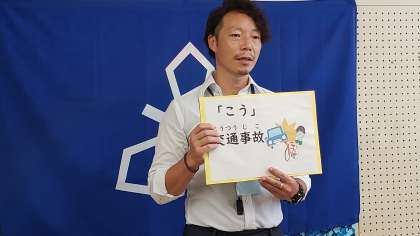 「こう」
こうつうじこ
交通事故